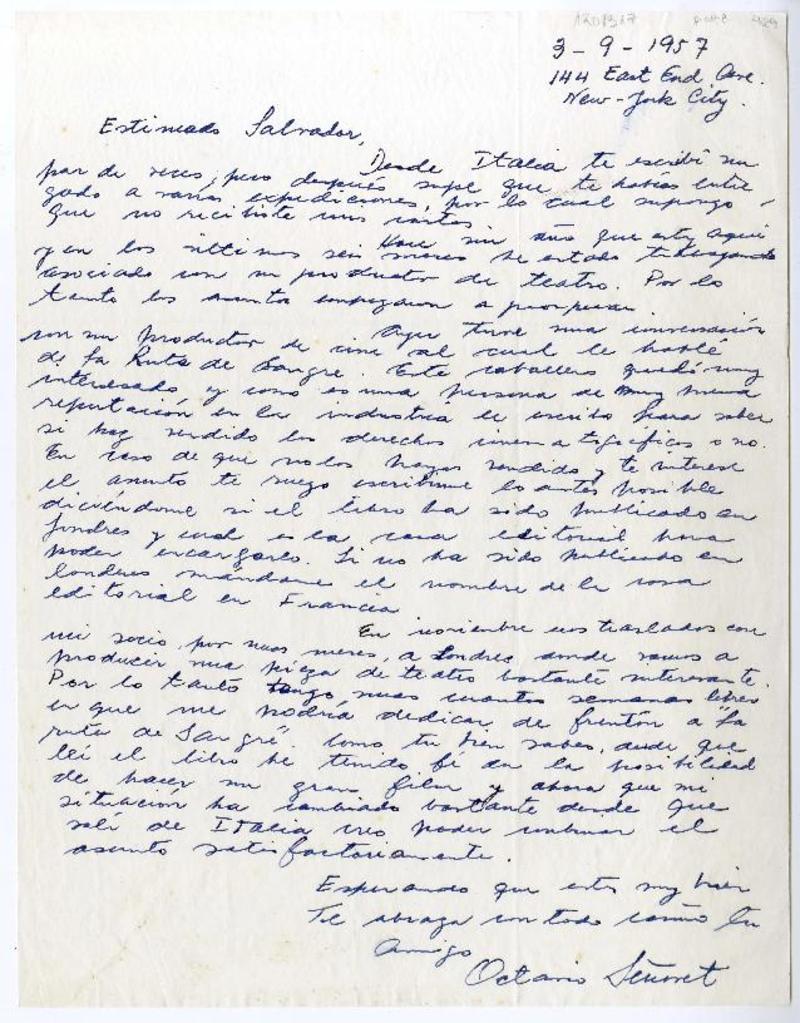 3-9-1957
144 East End Ave.
New-York City.
Estimado Salvador,
Desde Italia te escribí un
par de veces, pero después supe que te habías entre
gado a varias expediciones, por lo cual supongo
que no recibiste mis cartas.
Hace un año que estoy aquí
y en los últimos seis meses he estado trabajando
asociado con un productor de teatro. Por lo
tanto los asuntos empezaron a prosperar.
Ayer tuve una conversación
con un productor de cine al cual le hablé
de la Ruta de Sangre. Este caballero quedó muy
interesado y como es una persona de muy buena
reputación en la industria te escribo para saber
si has vendido los derechos cinematográficos o no.
En caso de que no los hayas vendido y te interese
el asunto te ruego escribirme lo antes posible
diciéndome si el libro ha sido publicado en
Londres y cual es la casa editorial para
poder encargarlo. Si no ha sido publicado en
Londres mándame el nombre de la casa
editorial en Francia
En noviembre nos traslados con
mi socio, por unos meses, a Londres donde vamos a
producir una pieza de teatro bastante interesante.
Por lo tanto tengo unas cuantas semanas libres
en que me podría dedicar de frentón a "La
ruta de Sangre". Como tu bien sabes, desde que
leí el libro he tenido fé en la posibilidad
de hacer un gran film y ahora que mi
situación ha cambiado bastante desde que
salí de Italia creo poder combinar el
asunto satisfactoriamente.
Esperando que estes muy bien
Te abraza con todo cariño tu
amigo
Octavio Señoret